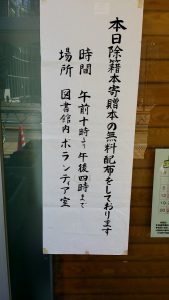 本日除籍本寄贈本の無料配布をしております
時間　午前十時より午後四時まで
場所　図書館内ボランティア室